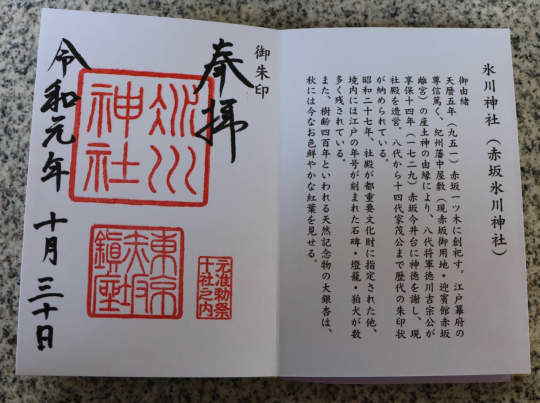 氷川神社(赤坂氷川神社)
御由緒
天暦五年(九五一)赤坂一ツ木に創祀す。江戸幕府の
尊信篤く、紀州藩中屋敷(現赤坂御用地・迎賓館赤坂
離宮)の産土神の由縁により、八代将軍徳川吉宗公が
享保十四年(一七二九)赤坂今井台に神徳を謝し、現
社殿を造営。八代から十四代家茂公まで歴代の朱印状
が納められている。
昭和二十七年、社殿が都重要文化財に指定された他、
境内には江戸の年号が刻まれた石碑・燈籠・狛犬が数
多く残されている。
また、樹齢四百年といわれる天然記念物の大銀杏は、
秋には今なお色鮮やかな紅葉を見せる。
御朱印
奉拝
氷川
神社
元准勅祭
十社之内
東京
赤坂
鎮座
令和元年 十月 三十日